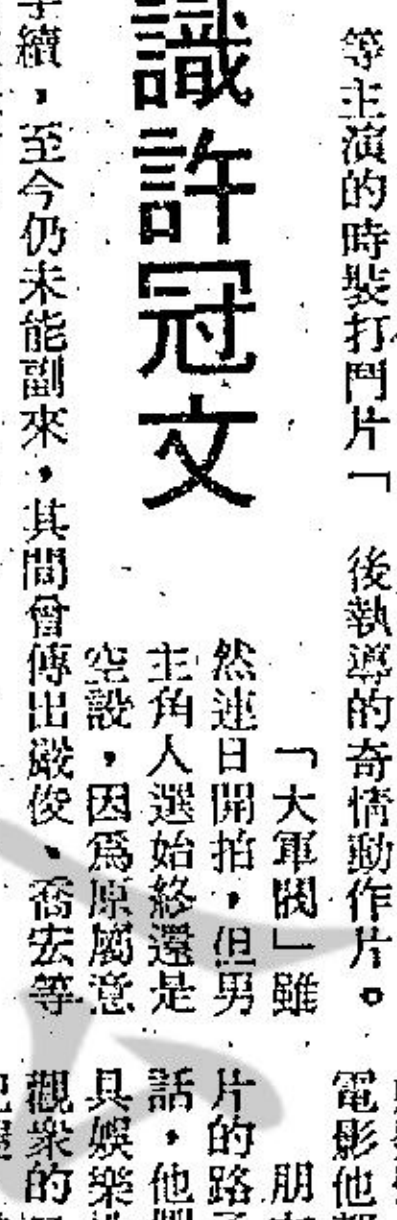 等主演的時裝打鬥片「
後執導的奇情動作片。
識許冠文
「大軍閥」雖
然連日開拍，但男
主角人選始終還是
空設，因爲原屬意
續，至今仍未能副來，其間曾傳出嚴俊、喬宏等
電影他
朋
片的路
話，他
具娛樂
觀衆的